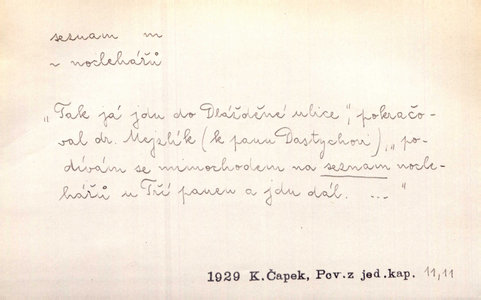 seznam m
~ noclehářů
„Tak já jdu do Dlážděné ulice“, pokračo-
val dr. Mejzlík (k panu Dastychovi), „po-
dívám se mimochodem na seznam nocle-
hářů u Tří panen a jdu dál. ... “
1929 K.Čapek, Pov.z jed.kap. 11,11